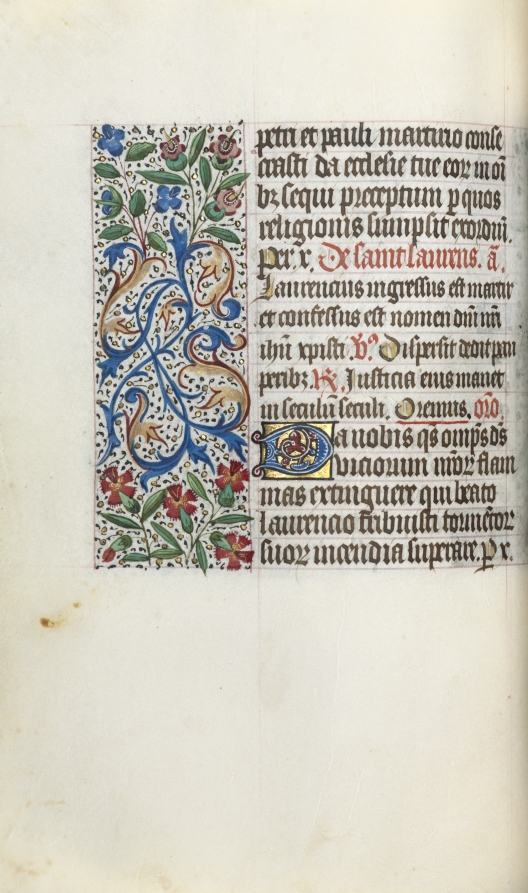 petri et pauli martirio conse
crasti da ecclesie tue eor in oĩ
bꝫ sequi preceptum p quos
religionis sumpsit exordiũ.
Per. x. De saint laurens. ã.
Laurencius ingressus est martir
et confessus est nomen dñi nrĩ
ihũ xpisti ℣ Dispersit dedit pau
peribꝫ ℟ Iusticia eius manet
in seculũ seculi. Oremus. orõ
Da nobis qs̃ omps̃ ds̃
viciorum nr̃or flam
mas extinguere qui beato
laurencio tribuisti tormẽtor
suoꝝ incendia superare. P x.